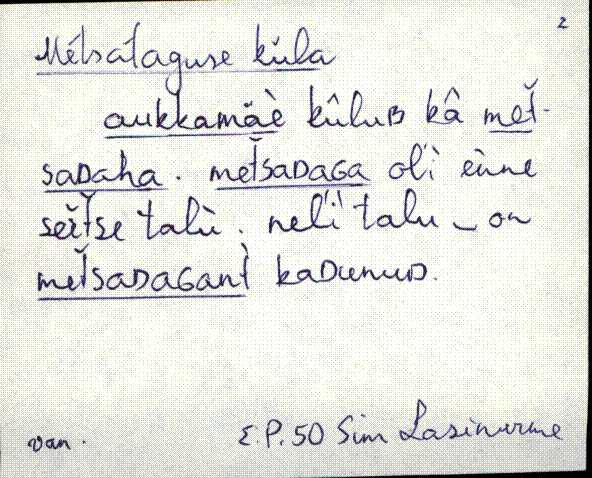 2
Métsátaguse kŭla
aukkamäè kûluʙ kâ met̆-
saᴅaha. met̆saᴅaɢa ol'i eùne
sèit̆se talù. nel'i talu – on
met̆saᴅaɢant̀ kaᴅunuᴅ.
van.
E.P. 50 Sim Lasinurme